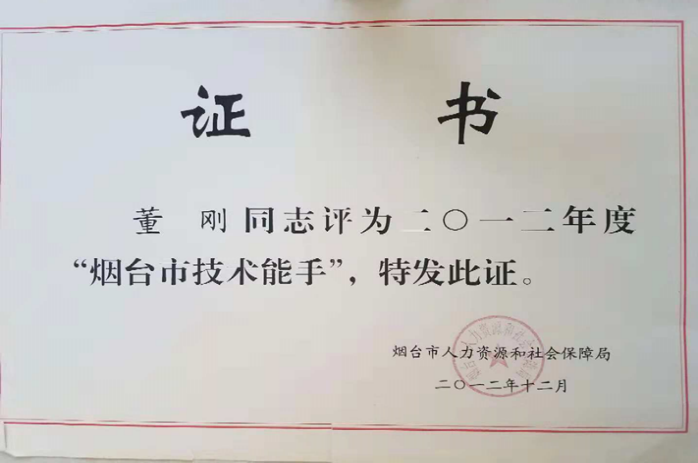 证 书
董 刚 同志评为二〇一二年度
“烟台市技术能手”，特发此证。
烟台市人力资源和社会保障局
二〇一二年十二月